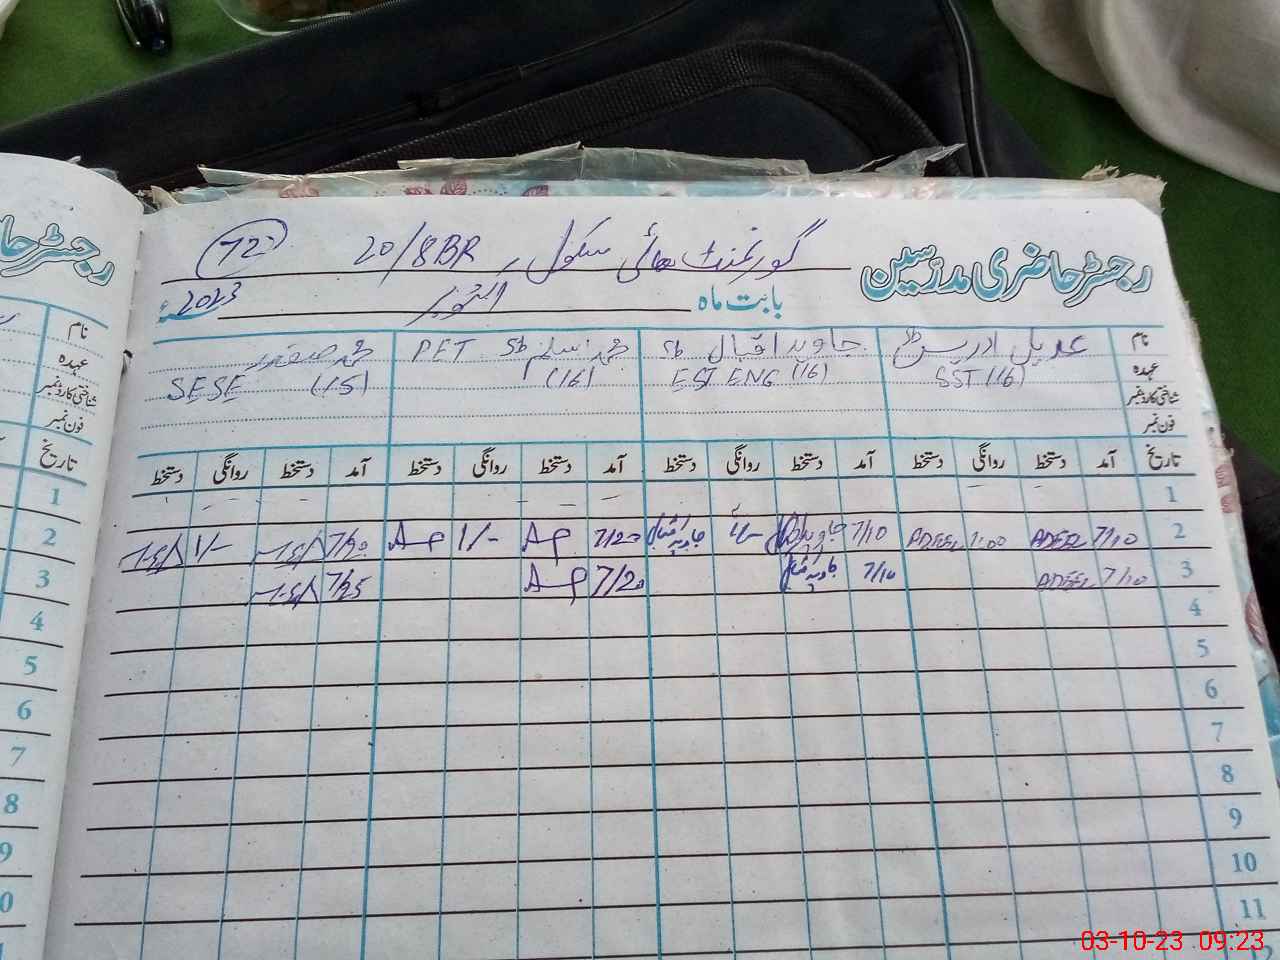 رجسٹر حاضری مدرسین گورنمنٹ ہائی سکول 20/8BR 72
بابت ماہ اکتوبر 2023ء
نام عدیل ادریس جاوید اقبال Sb محمد اسلم Sb PET محمد صفدر
عہدہ SST (16) EST ENG (16) (16) SESE (15)
شناختی کارڈ نمبر
فون نمبر
تاریخ آمد دستخط روانگی دستخط آمد دستخط روانگی دستخط آمد دستخط روانگی دستخط آمد دستخط روانگی دستخط
1
2 7/10 ADEEL 1:00 ADEEL 7/10 جاوید اقبال 1/- جاوید اقبال 7/20 1/- 7/20 1/-
3 7/10 ADEEL 7/10 جاوید اقبال 7/20 7/25
4
5
6
7
8
9
10
11
12
رجسٹر حا
نام
عہدہ
شناختی کارڈ نمبر
فون نمبر
تاریخ
1
2
3
4
5
6
7
8
9
0
1
03-10-23 09:23